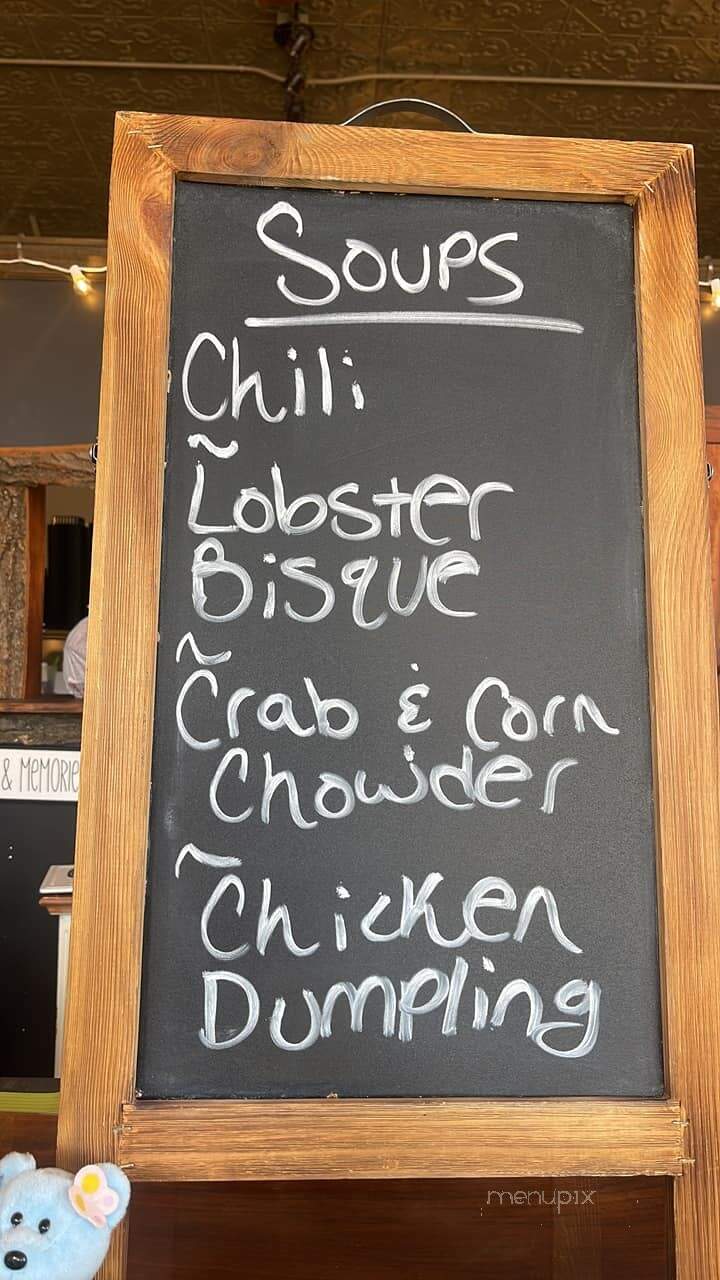 Soups
Chili
~
Lobster
Bisque
~
Crab & Corn
Chowder
~
Chicken
Dumpling
& MEMORIE
menupix